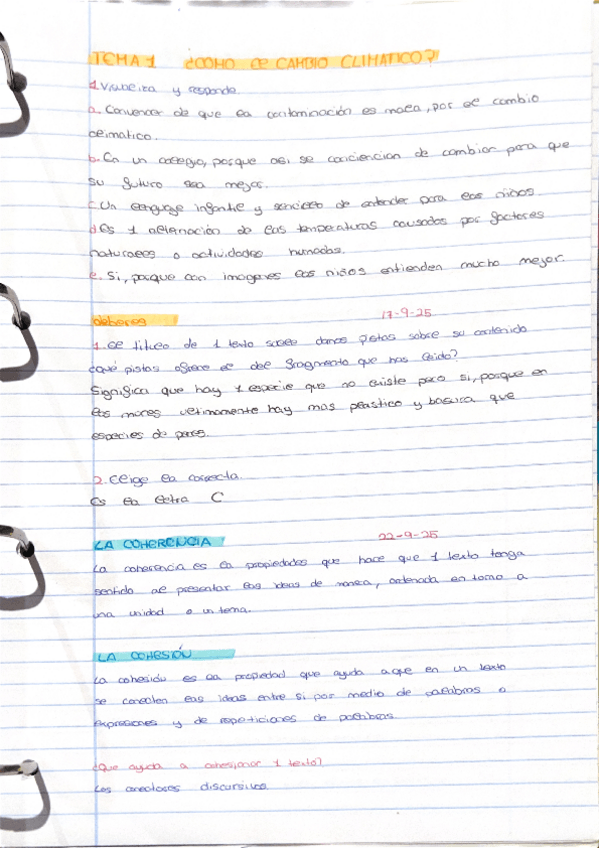 TEMA 1 ¿COMO DE CAMBIO CLIMATICO?
1. Visualiza y responde.
a. Convencer de que la contaminación es mala, por el cambio
climatico.
b. En un colegio, porque asi se conciencian de cambiar para que
su futuro sea mejor.
c. Un lenguaje infantil y sencillo de entender para los niños
d. Es 1 alternación de las temperaturas causadas por factores
naturales o actividades humadas.
e. Si, porque con imagenes los niños entienden mucho mejor.
deberes 17-9-25
1. El titulo de 1 texto suele darnos pistas sobre su contenido
¿qué pistas ofrece el del fragmento que has leido?
Significa que hay 1 especie que no existe pero si, porque en
los mares ultimamente hay mas plastico y basura que
especies de peces.
2. Elige la correcta.
Es la letra C
LA COHERENCIA 22-9-25
La coherencia es la propiedades que hace que 1 texto tenga
sentido al presentar las ideas de manera, ordenada en torno a
una unidad o un tema.
LA COHESIÓN
La cohesión es la propiedad que ayuda a que en un texto
se conecten las ideas entre si por medio de palabras o
expresiones y de repeticiones de palabras.
¿Que ayuda a cohesionar 1 texto?
Los conectores discursivos